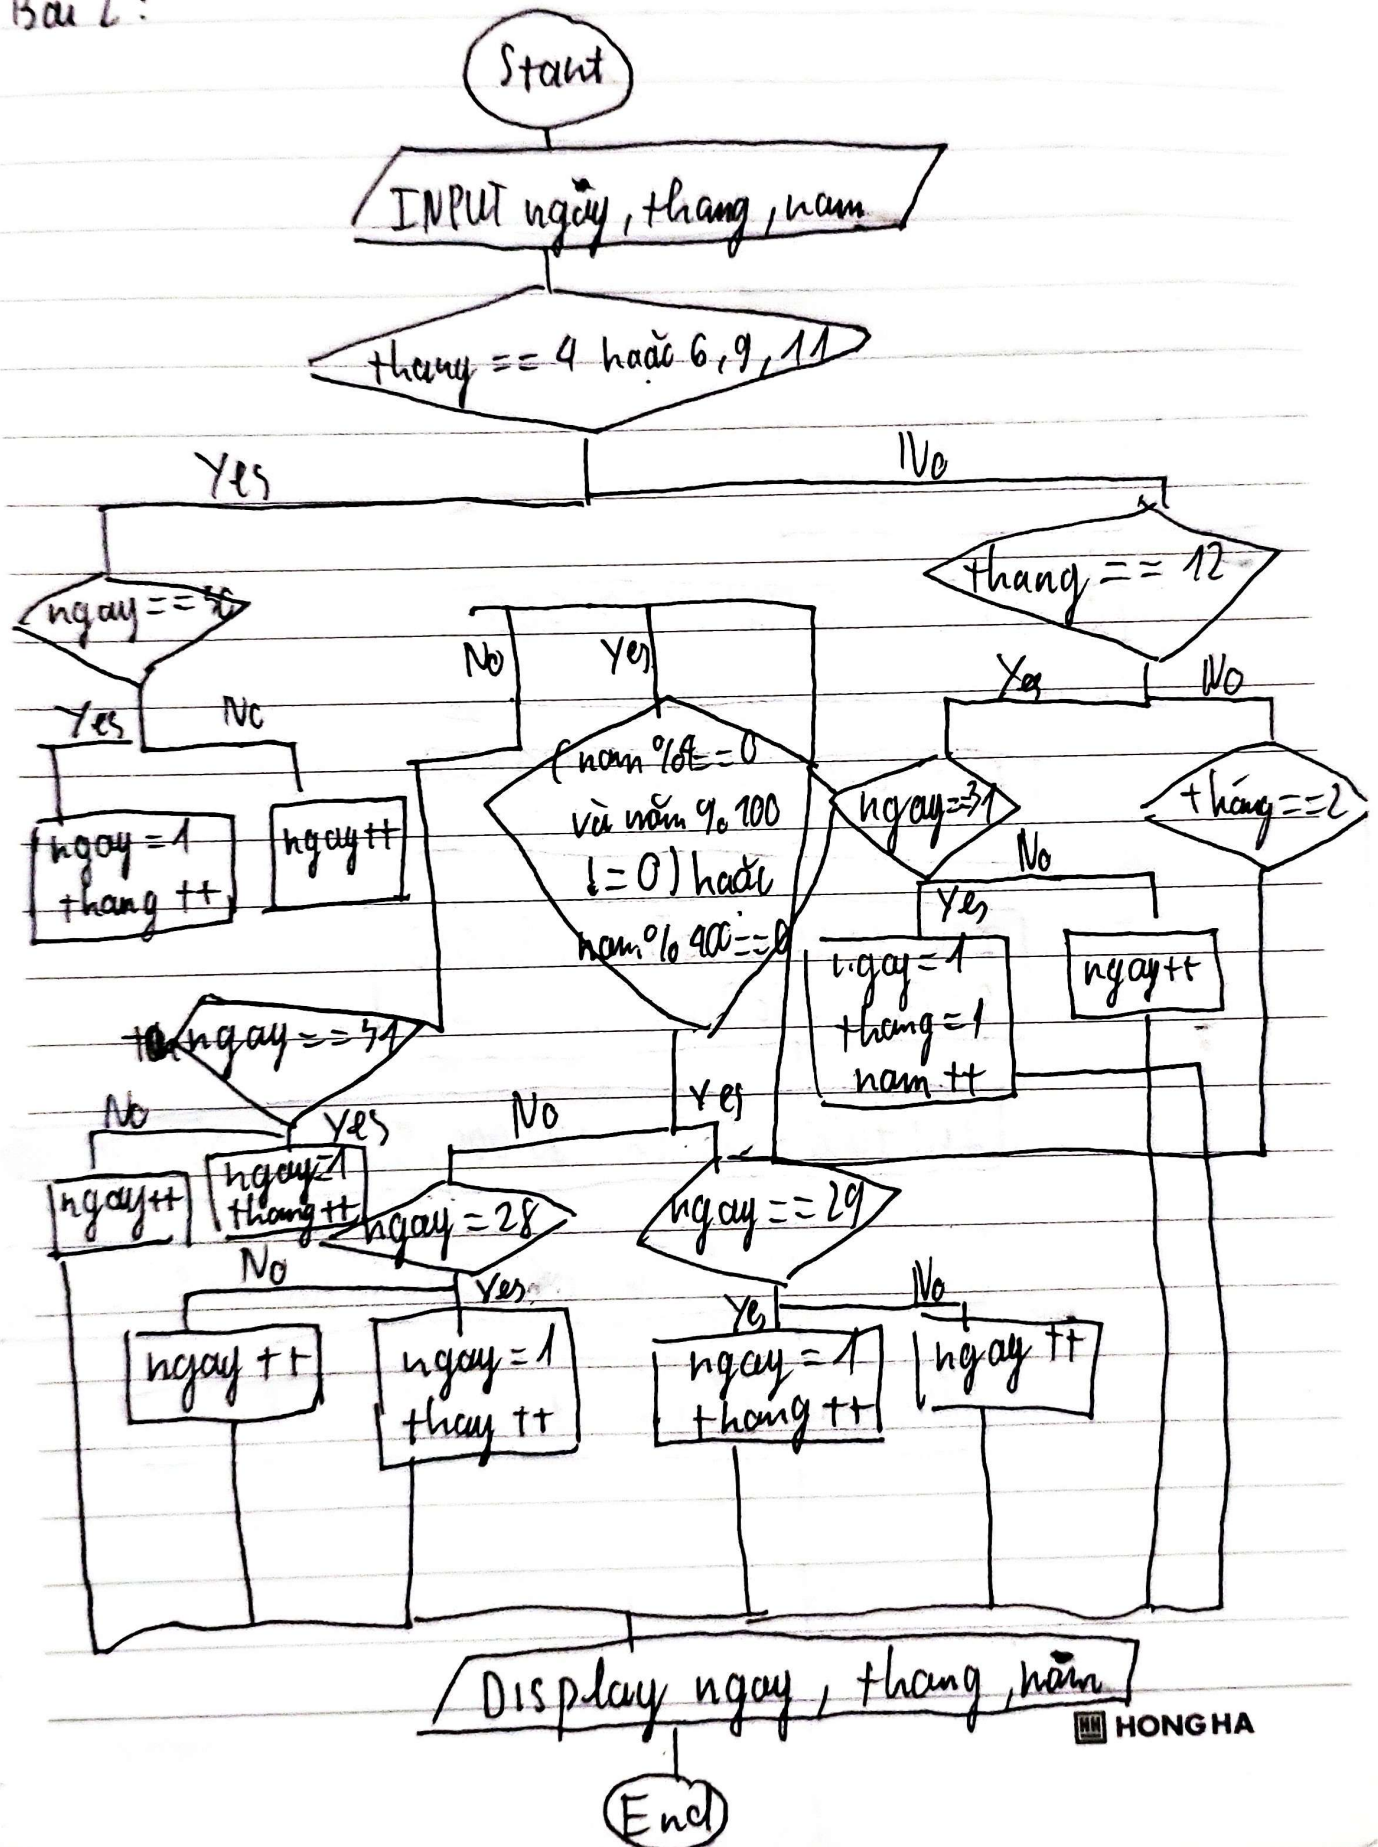 Bài 2:
Start
INPUT ngày, thang, nam
thang == 4 hoặc 6, 9, 11
Yes
No
thang == 12
ngay ==
No
Yes
Yes
No
Yes
No
(nam % 4 == 0
và năm % 100
!= 0) hoặc
nam % 400 == 0
ngay == 31
tháng == 2
ngay = 1
thang ++
ngay ++
Yes
No
ngay = 1
thang = 1
nam ++
ngay ++
ngay == 31
No
Yes
No
Yes
ngay ++
ngay = 1
thang ++
ngay = 28
ngay == 29
No
Yes
Yes
No
ngay ++
ngay = 1
thay ++
ngay = 1
thang ++
ngay ++
Display ngay, thang, năm
HONG HA
End